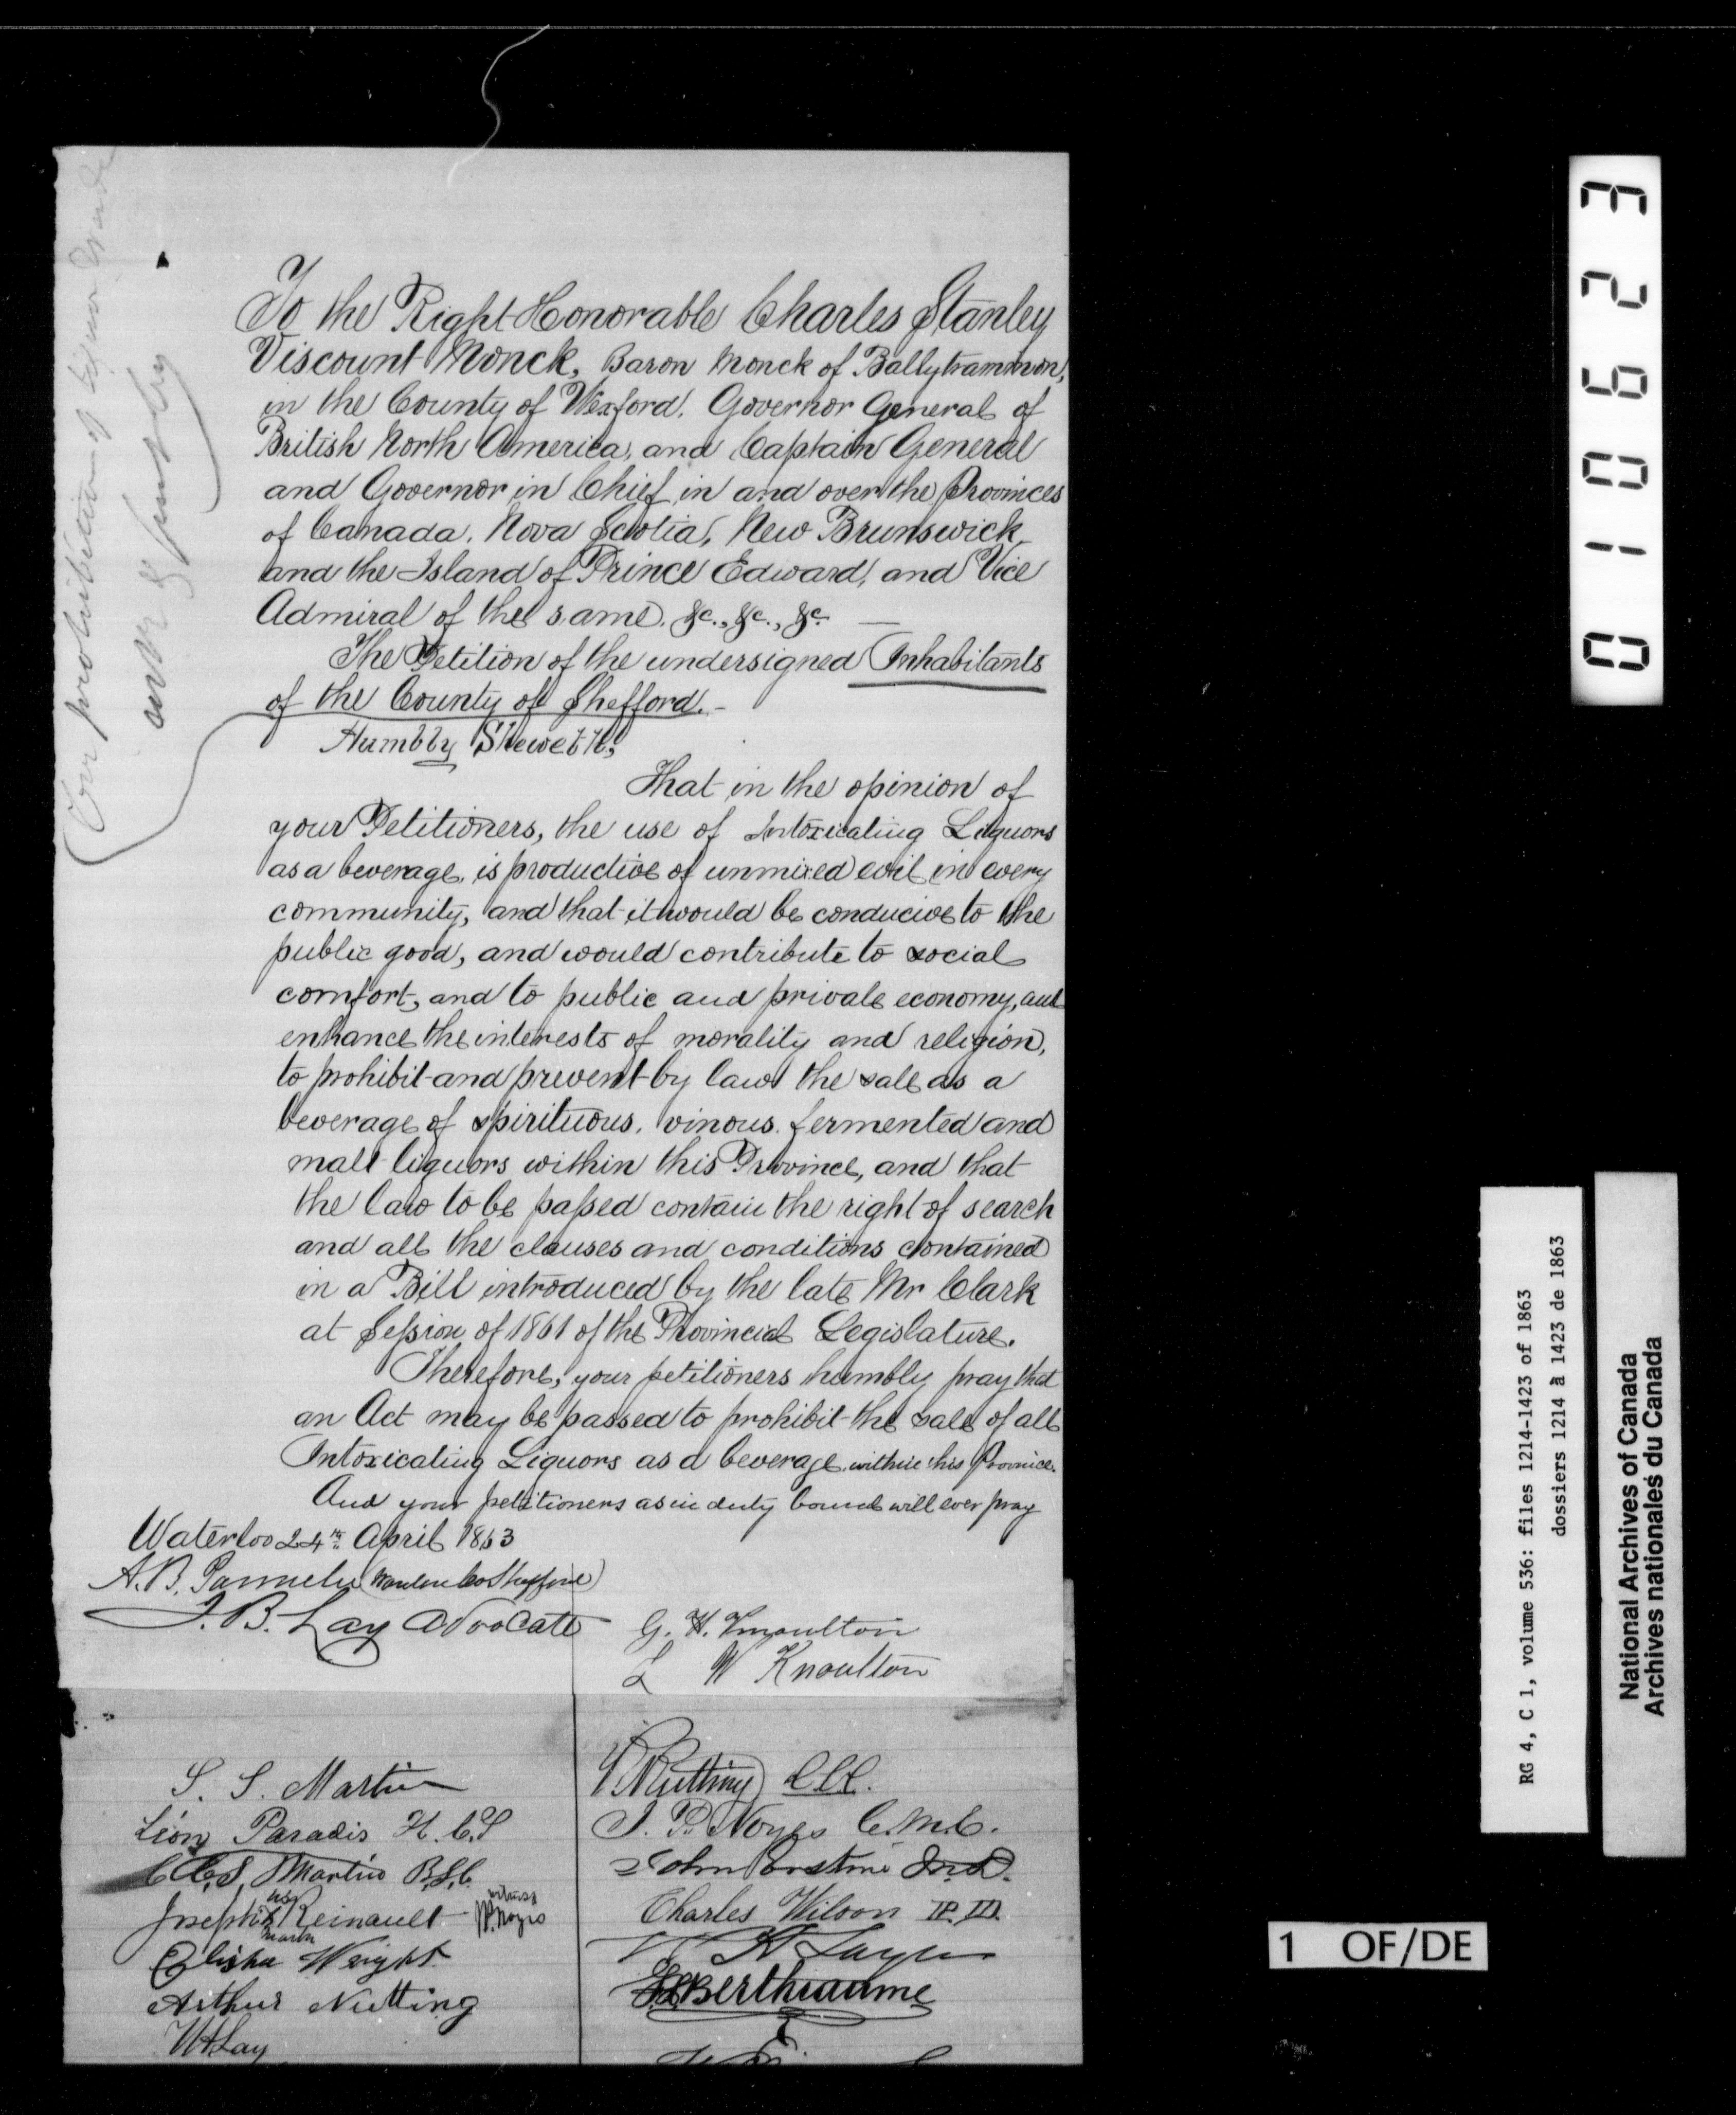 To the Right Honorable Charles Stanley
Viscount Monck, Baron Monck of Ballytrammon,
in the County of Wexford. Governor General of
British North America, and Captain General
and Governor in Chief in and over the Provinces
of Canada, Nova Scotia, New Brunswick
and the Island of Prince Edward, and Vice
Admiral of the same. &c., &c., &c. —
The Petition of the undersigned Inhabitants
of the County of Shefford. -
Humbly Sheweth,
That in the opinion of
your Petitioners, the use of Intoxicating Liquors
as a beverage, is productive of unmixed evil in every
community, and that it would be conducive to the
public good, and would contribute to social
comfort, and to public and private economy, and
enhance the interests of morality and religion,
to prohibit and prevent by law the sale as a
beverage of spirituous, vinous, fermented and
malt liquors within this Province, and that
the law to be passed contain the right of search
and all the clauses and conditions contained
in a Bill introduced by the late Mr Clark
at Session of 1861 of the Provincial Legislature.
Therefore, your petitioners humbly pray that
an Act may be passed to prohibit the sale of all
Intoxicating Liquors as a beverage within this Province.
And your petitioners as in duty bound will ever pray
Waterloo 24th April 1863
A. B. Parmelee (Warden Co Shefford)
J. B. Lay Advocate
G. H. Knoulton
L W Knoulton
S. S. Martin
Léon Paradis H.C.S
C.S. Martin B.S.C.
Joseph his X mark Reinault witness J.P. Noyes
Elisha Wright
Arthur Nutting
W H Lay
Nutting CCC.
J. P. Noyes C.M.C.
John Erskine M.D.
Charles Wilson
Berthiaume
For prohibition of Liquor Trade
0 1 0 6 2 3
RG 4, C 1, volume 536: files 1214-1423 of 1863
dossiers 1214 à 1423 de 1863
National Archives of Canada
Archives nationales du Canada
1 OF/DE